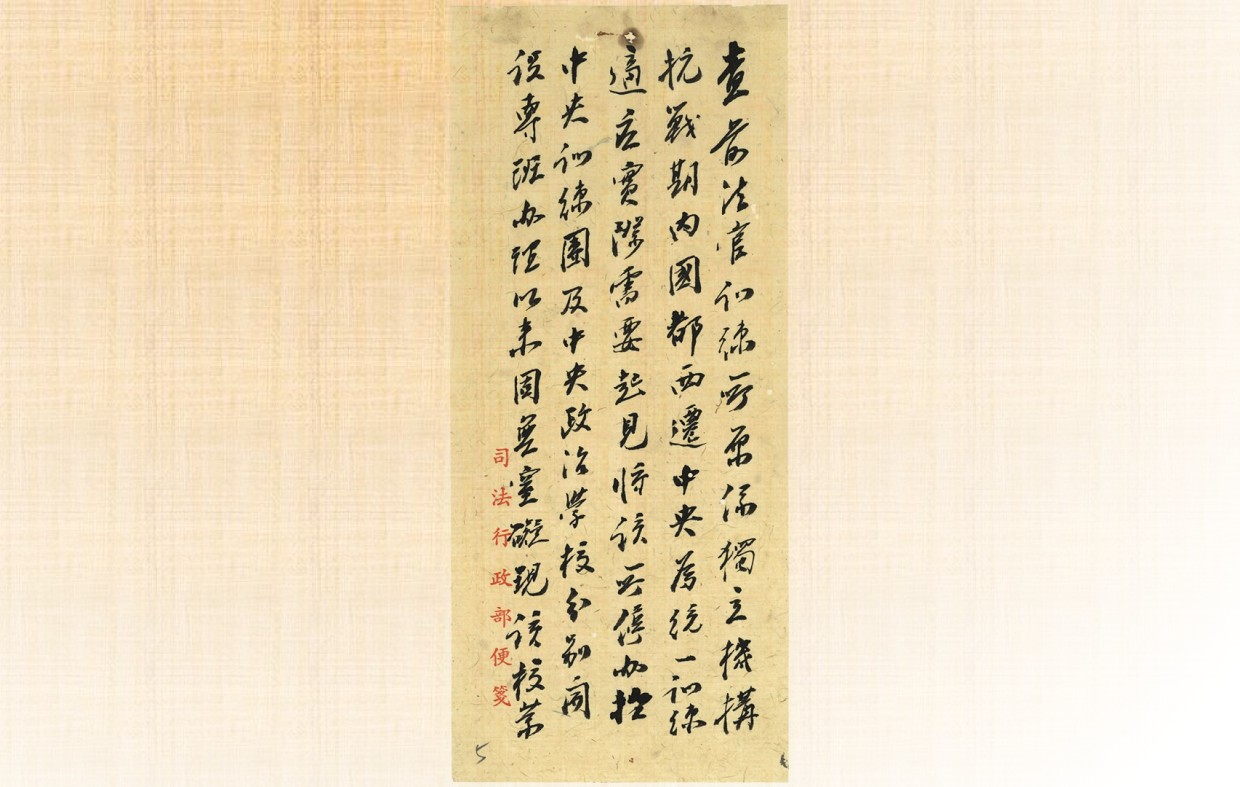 查前法官训練所原係獨立機構
抗戰期內國都西遷中央為統一训練
適应實際需要起見將該所停办于
中央训練團及中央政治學校分别開
设專班办理以来固無窒礙現該校業
司法行政部便箋
5